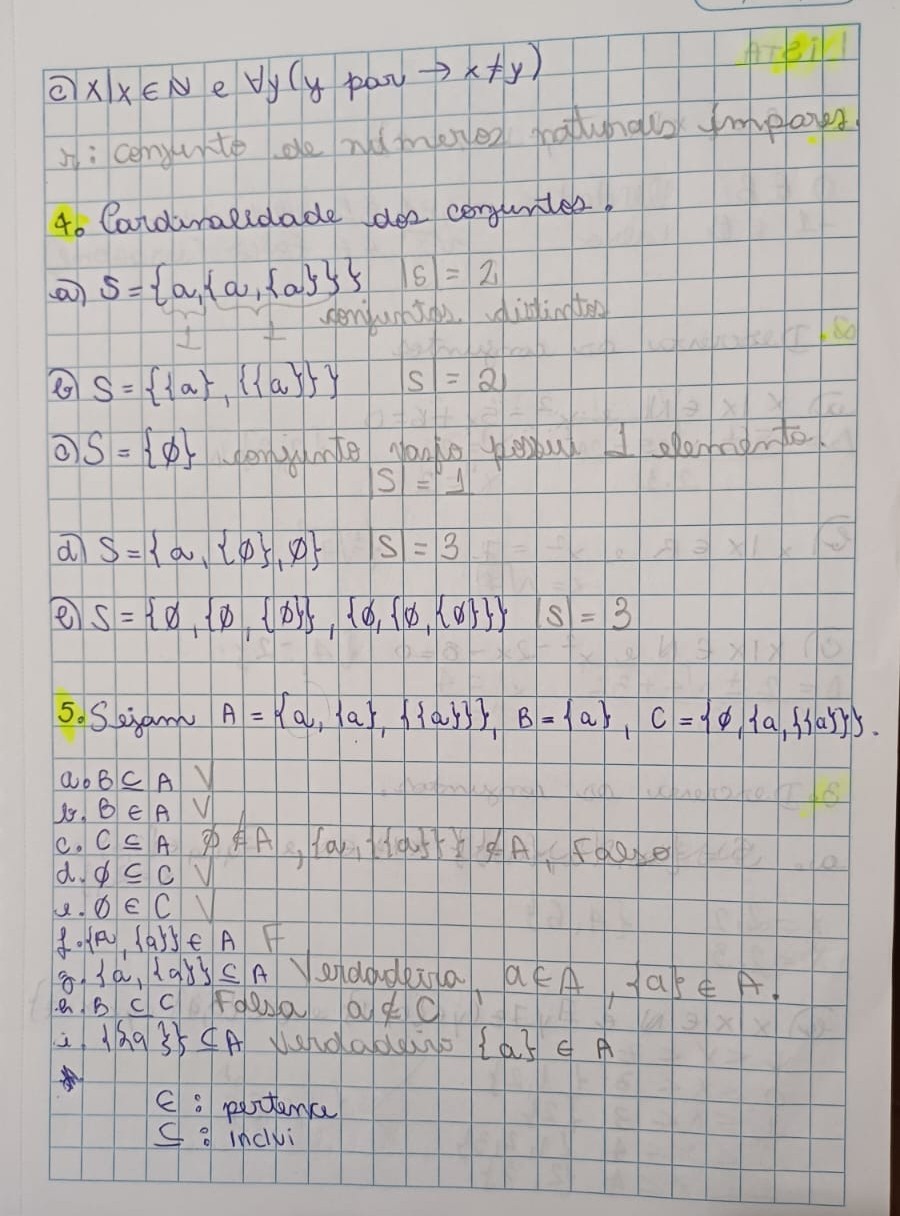 c) x|x ∈ N e ∀y(y par → x ≠ y)
r: conjunto de números naturais ímpares.
4. Cardinalidade dos conjuntos.
a) S = {a, {a, {a}}} |S| = 2
conjuntos distintos
1 1
b) S = {{a}, {{a}}} |S = 2
c) S = {∅} conjunto vazio possui 1 elemento.
|S| = 1
d) S = {a, {∅}, ∅} |S| = 3
e) S = {∅, {∅, {∅}}, {∅, {∅, {∅}}}} |S| = 3
5. Sejam A = {a, {a}, {{a}}}, B = {a}, C = {∅, {a, {{a}}}.
a. B ⊆ A V
b. B ∈ A V
c. C ⊆ A ∅ ∉ A, {a, {{a}}} ∉ A, Falso
d. ∅ ⊆ C V
e. ∅ ∈ C V
f. {A, {a}} ∈ A F
g. {a, {a}} ⊆ A Verdadeira, a ∈ A, {a} ∈ A.
h. B ⊆ C Falsa a ∉ C
i. {{a}} ⊆ A Verdadeiro {a} ∈ A
∈ : pertence
⊆ : inclui